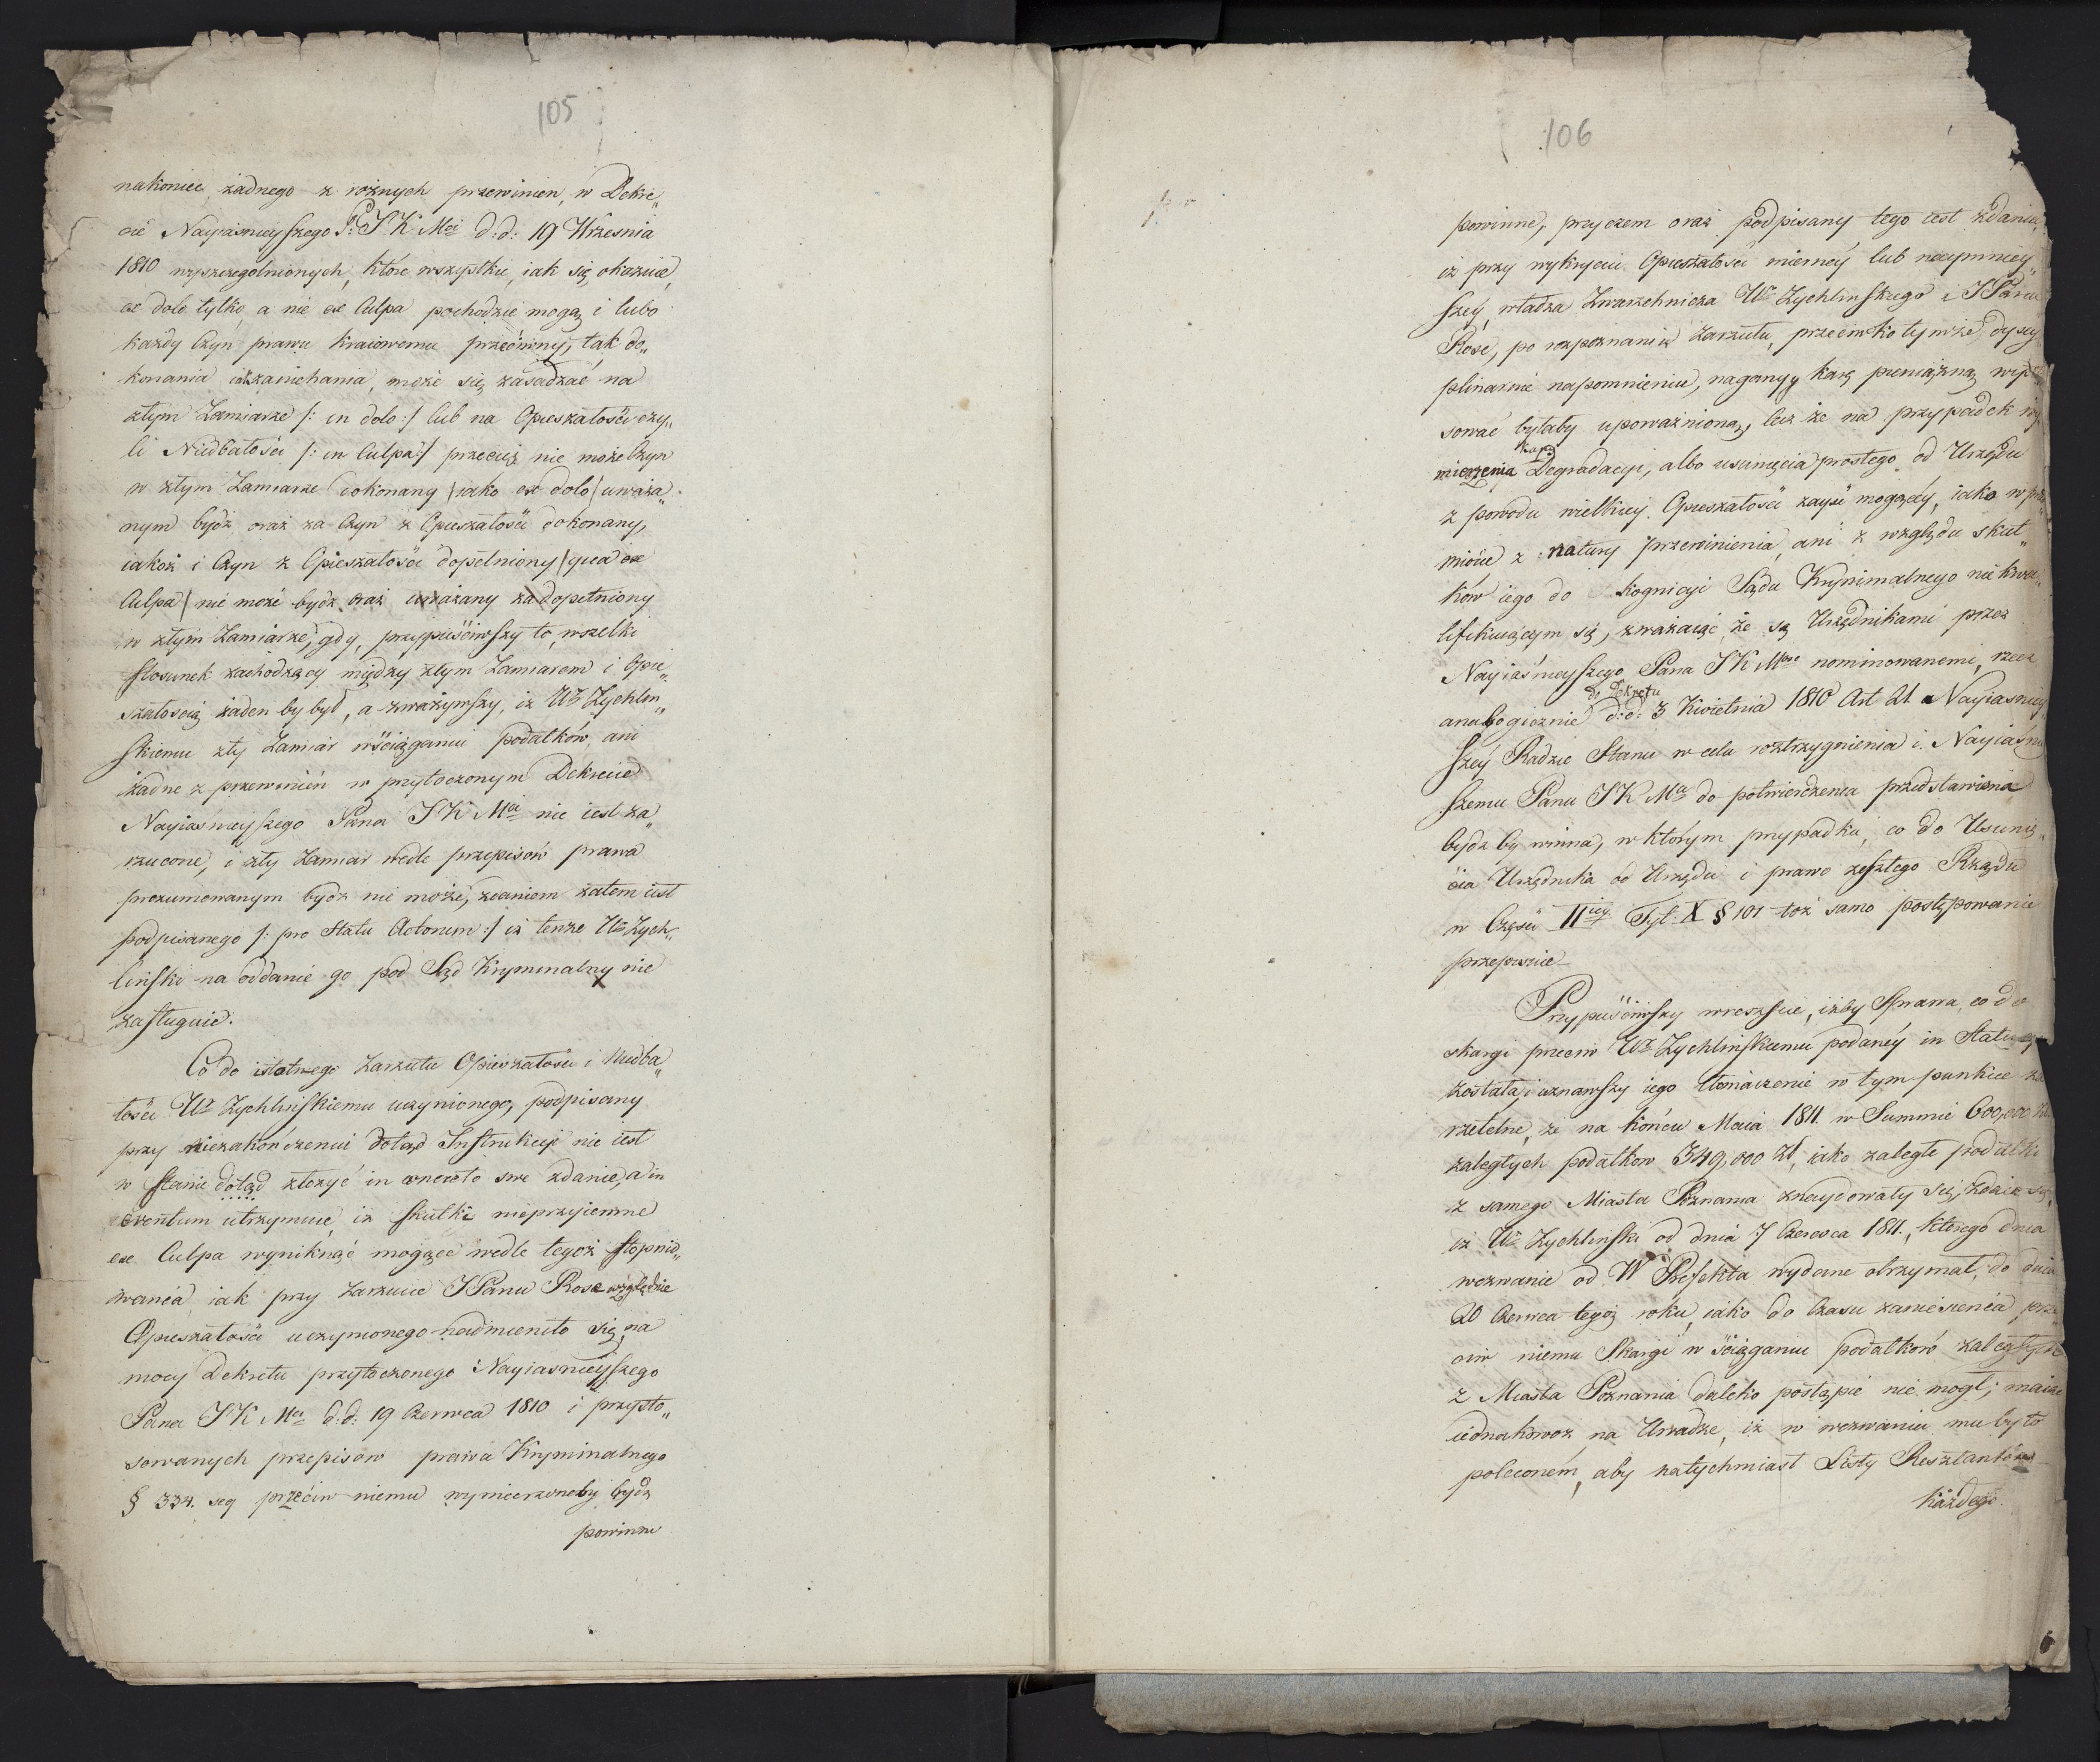 105
nakoniec żadnego z rożnych przewinien, w Dekre„
cie Nayiasnieyszego P: J K Mci d: d: 19 Wrzesnia
1810 wyszczegolnionych, które wszystkie, iak się okazuie,
ex dolo tylko, a nie ex Culpa pochodzić mogą i lubo
każdy Czyn prawu kraiowemu przeciwny, tak do„
konania iak zaniehania, może się zasadzać na
złym Zamiarze /: in dolo :/ lub na Opieszałości czy„
li Niedbałości /: in Culpa :/ przecież nie może Czyn
w złym Zamiarze dokonany /iako ex dolo/ uważa„
nym bydź oraz za Czyn z Opieszałości dokonany,
iakoż i Czyn z Opieszałości dopełniony /qua ex
Culpa/ nie może bydz oraz uważany za dopełniony
w złym Zamiarze, gdy, przypuściwszy to, wszelki
stosunek zachodzący między złym Zamiarem i Opie„
szałoscią żaden by był, a zważywszy, iż Wr Zychlin„
skiemu zły Zamiar w ściąganiu podatków, ani
żadne z przewinień w przytoczonym Dekrecie
Nayiasnieyszego Pana J K Mci nie iest za„
rzucone, i zły Zamiar wedle przepisow prawa
prezumowanym bydz nie może, zdaniem zatem iest
podpisanego /: pro Statu Actorum :/ iż tenże Wr Zych„
linski na oddanie go pod Sąd Kryminalny nie
zasługuie.
Co do istotnego Zarzutu Opieszałości i Niedba„
łości Wr Zychlinskiemu uczynionego, podpisany
przy niezakończeniu dotąd Instrukcyi nie iest
w stanie dotąd złożyć in concreto swe zdanie, a in
eventum utrzymuie, iż skutki nieprzyiemne
ex Culpa wyniknąć mogące wedle tegoż stopnio„
wania iak przy Zarzucie J Panu Rose względnie
Opieszałości uczynionego nadmieniło się, na
mocy Dekretu przytoczonego Nayiasnieyszego
Pana J K Mci d: d: 19 Czerwca 1810 i przysto„
sowanych przepisow prawa Kryminalnego
§ 334. seq przeciw niemu wymierzoneby bydz
powinne
106
powinne, przyczem oraz podpisany tego iest zdania,
iż przy wykryciu Opieszałości mierney lub naymniey„
szey, władza Zwierzchnicza Wo Zychlinskiego i J Pana
Rose, po rozpoznaniu Zarzutu, przeciwko tymże, dyscy
plinarnie napomnieniu, nagany y karę pieniężną wipo
sować byłaby upoważnioną, lecz że na przypadek wy„
mierzenia kary Degradacyi, albo usunięcia prostego od Urzędu
z powodu wielkiey Opieszałości zayść mogącéy, iako w prze
miocie z natury przewinienia, ani z względu skut„
ków iego do kognicyi Sądu Kryminalnego niekwa„
lifikuiącym się, zważaiąc że są Urzędnikami przez
Nayiaśnieyszego Pana J K Mcą nominowanemi, rzecz
analogicznie do Dekretu d: d: 3 Kwietnia 1810 Art 21. Nayiasniey
széy Radzie Stanu w celu roztrzygnienia i Nayiasniey
szemu Panu J K Mci do potwierdzenia przedstawiona
bydz by winna, w którym przypadku, co do Usunię„
cia Urzędnika od Urzędu i prawo zeszłego Rządu
w Części II iey Tyt X § 101 toż samo postępowanie
przepisuie
Przypuściwszy wreszcie, iżby Sprawa, co do
skargi przeciw Wr Zychlinskiemu podanéy in Statu
została, i uznawszy iego tłomaczenie w tym punkcie za
rzetelne, że na końcu Maia 1811. w Summie 600,000
zaległych podatkow 349,000 zł, iako zaległe podatki
z samego Miasta Poznania znaydowały się, zdaie się,
iż Wr Zychlinski od dnia 7 Czerwca 1811., którego dnia
wezwanie od W Prefekta wydane otrzymał, do dnia
20 Czerwca tegoż roku, iako do Czasu zaniesienia prze
ciw niemu Skargi w ściąganiu podatków zaległych
z Miasta Poznania daleko postąpić nie mogł; maiąc
iednakowoż na Uwadze, iż w wezwaniu mu było
poleconém, aby natychmiast Listy Resztantów
każdego.